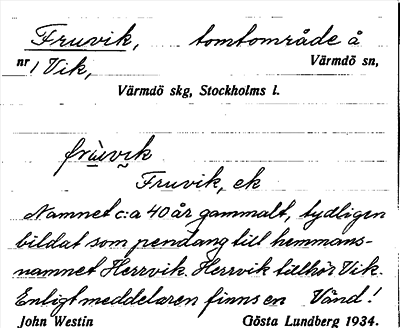 Fruvik, tomtområde å
nr 1 Vik, Värmdö sn,
Värmdö skg, Stockholms l.
frùvik
Fruvik, ek
Namnet c:a 40 år gammalt, tydligen
bildat som pendang till hemmans-
namnet Herrvik. Herrvik tillhör Vik.
Enligt meddelaren finns en Vänd!
John Westin Gösta Lundberg 1934.